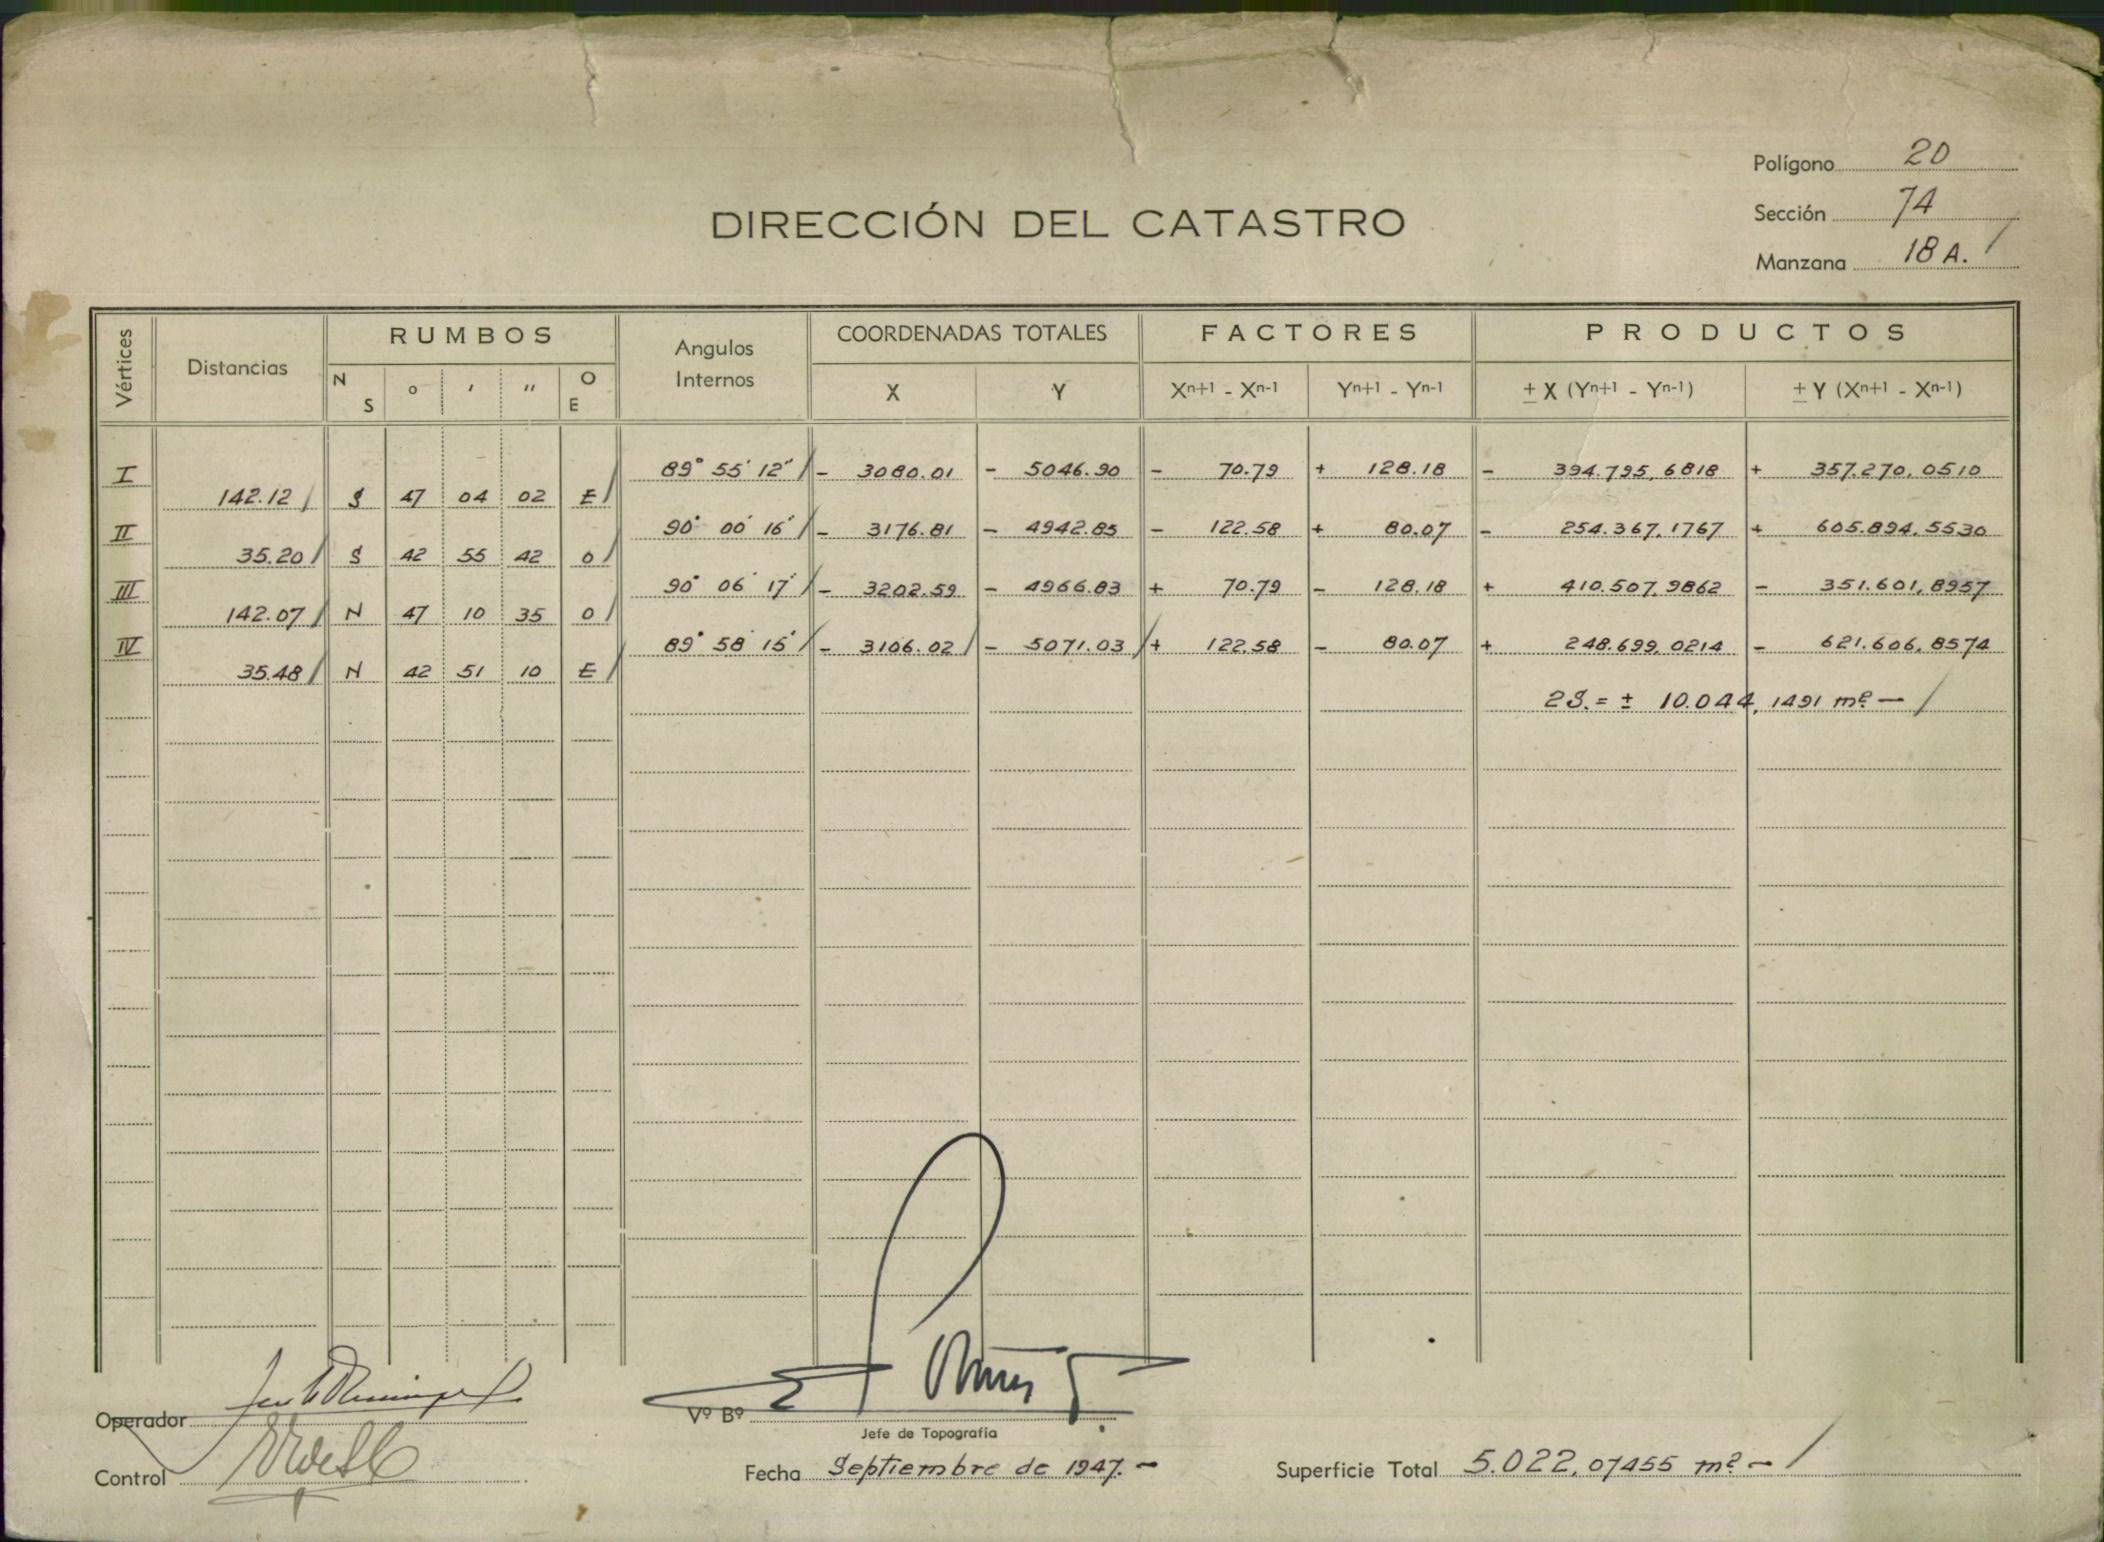 Polígono 20
Sección 74
Manzana 18 A.
DIRECCIÓN DEL CATASTRO
Vértices Distancias RUMBOS Angulos Internos COORDENADAS TOTALES FACTORES PRODUCTOS
N S ° ' " O E X Y Xn+1 - Xn-1 Yn+1 - Yn-1 ± X (Yn+1 - Yn-1) ± Y (Xn+1 - Xn-1)
I 89° 55' 12" - 3080.01 - 5046.90 - 70.79 + 128.18 - 394.795,6818 + 357.270,0510
142.12 S 47 04 02 E
II 90° 00' 16" - 3176.81 - 4942.85 - 122.58 + 80.07 - 254.367,1767 + 605.894,5530
35.20 S 42 55 42 O
III 90° 06' 17" - 3202.59 - 4966.83 + 70.79 - 128.18 + 410.507,9862 - 351.601,8957
142.07 N 47 10 35 O
IV 89° 58' 15" - 3106.02 - 5071.03 + 122.58 - 80.07 + 248.699,0214 - 621.606,8574
35.48 N 42 51 10 E
2S.= ± 10.044,1491 m² -
Operador
Vº Bº
Jefe de Topografía
Control
Fecha Septiembre de 1947.-
Superficie Total 5.022,07455 m² -